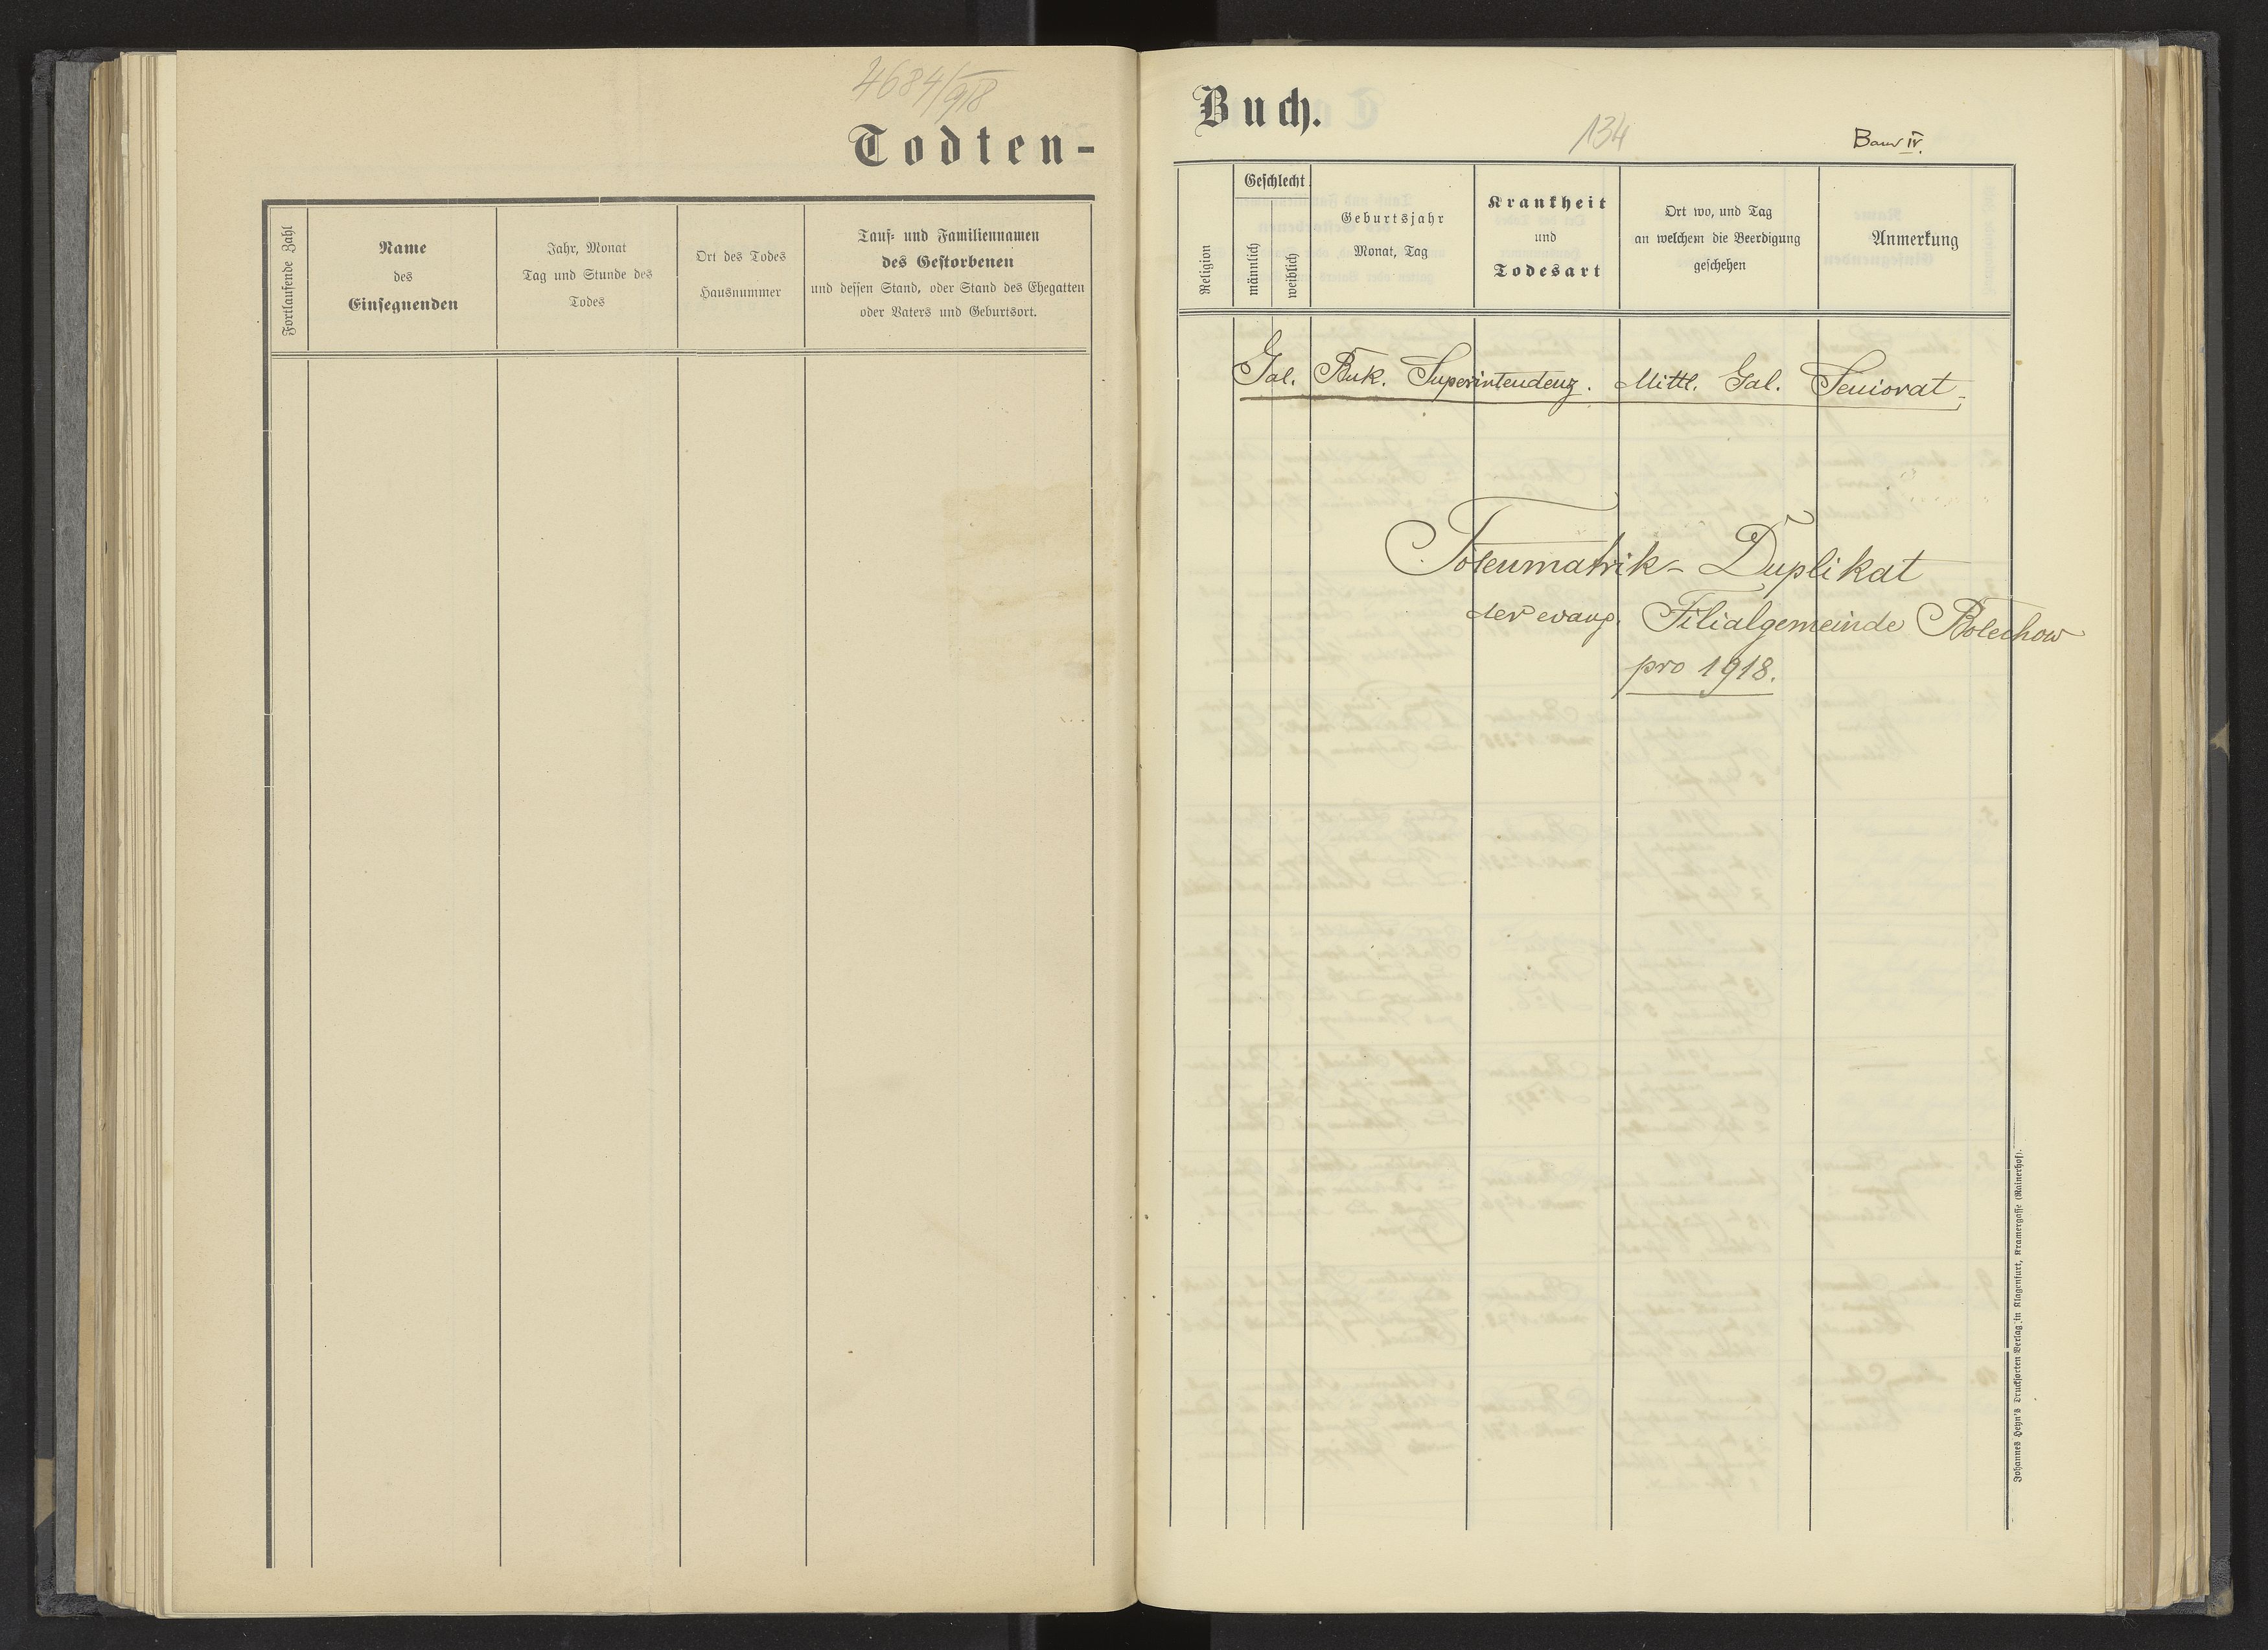 4684/918
Todten-
Fortlaufende Zahl
Name
des
Einsegnenden
Jahr, Monat
Tag und Stunde des
Todes
Ort des Todes
Hausnummer
Tauf- und Familiennamen
des Gestorbenen
und dessen Stand, oder Stand des Ehegatten
oder Vaters und Geburtsort.
Buch.
134
Band IV.
Religion
Geschlecht
männlich
weiblich
Geburtsjahr
Monat, Tag
Krankheit
und
Todesart
Ort wo, und Tag
an welchem die Beerdigung
geschehen
Anmerkung
Gal. Buk. Superintendenz. Mittl. Gal. Seniorat.
Totenmatrik- Duplikat
der evang. Filialgemeinde Bolechow
pro 1918.
Johannes Heyn's Drucksorten Verlag in Klagenfurt, Kramergasse (Rainerhof).